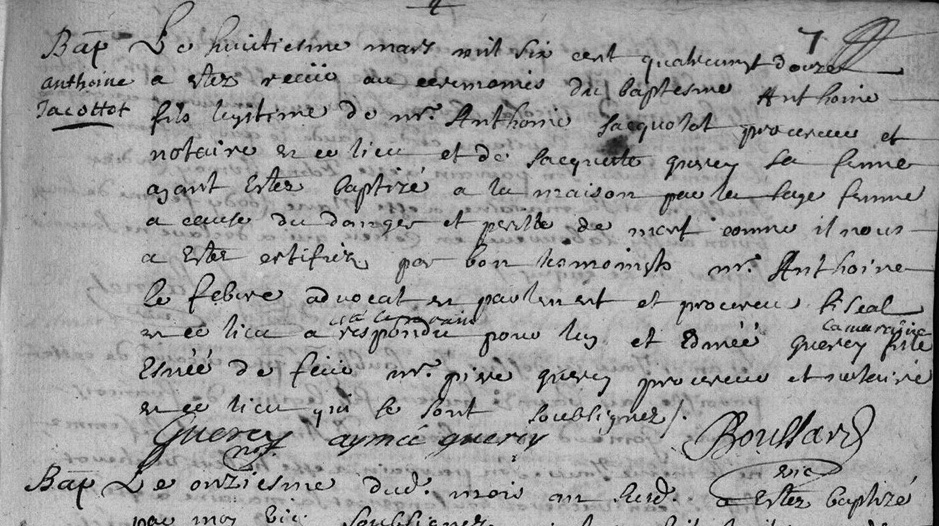 4
7
Bap Le huitiesme mars mil six cent quatrevingt douze
anthoine a estez receü au ceremonies du baptesme Anthoine
Jacottot fils legitime de mr. Anthoine Jacquotot procureur et
notaire en ce lieu et de Jacquette querey sa femme
ayant estez baptizé a la maison par la sage femme
a cause du danger et perille de mort comme il nous
a estez certifiez par bon tesmoins mr. Anthoine
le febvre advocat en parlement et procureur fiscal
en ce lieu a respondu pour luy et Edmée querey fille
esnée de feüe mr. piere querey procureur et notaire
en ce lieu qui se sont soubsignez /.
Querey aymée querey Boullard
vic
Bap Le onziesme dud. mois an sud. a estez baptizé
par moy vic. soubsigner